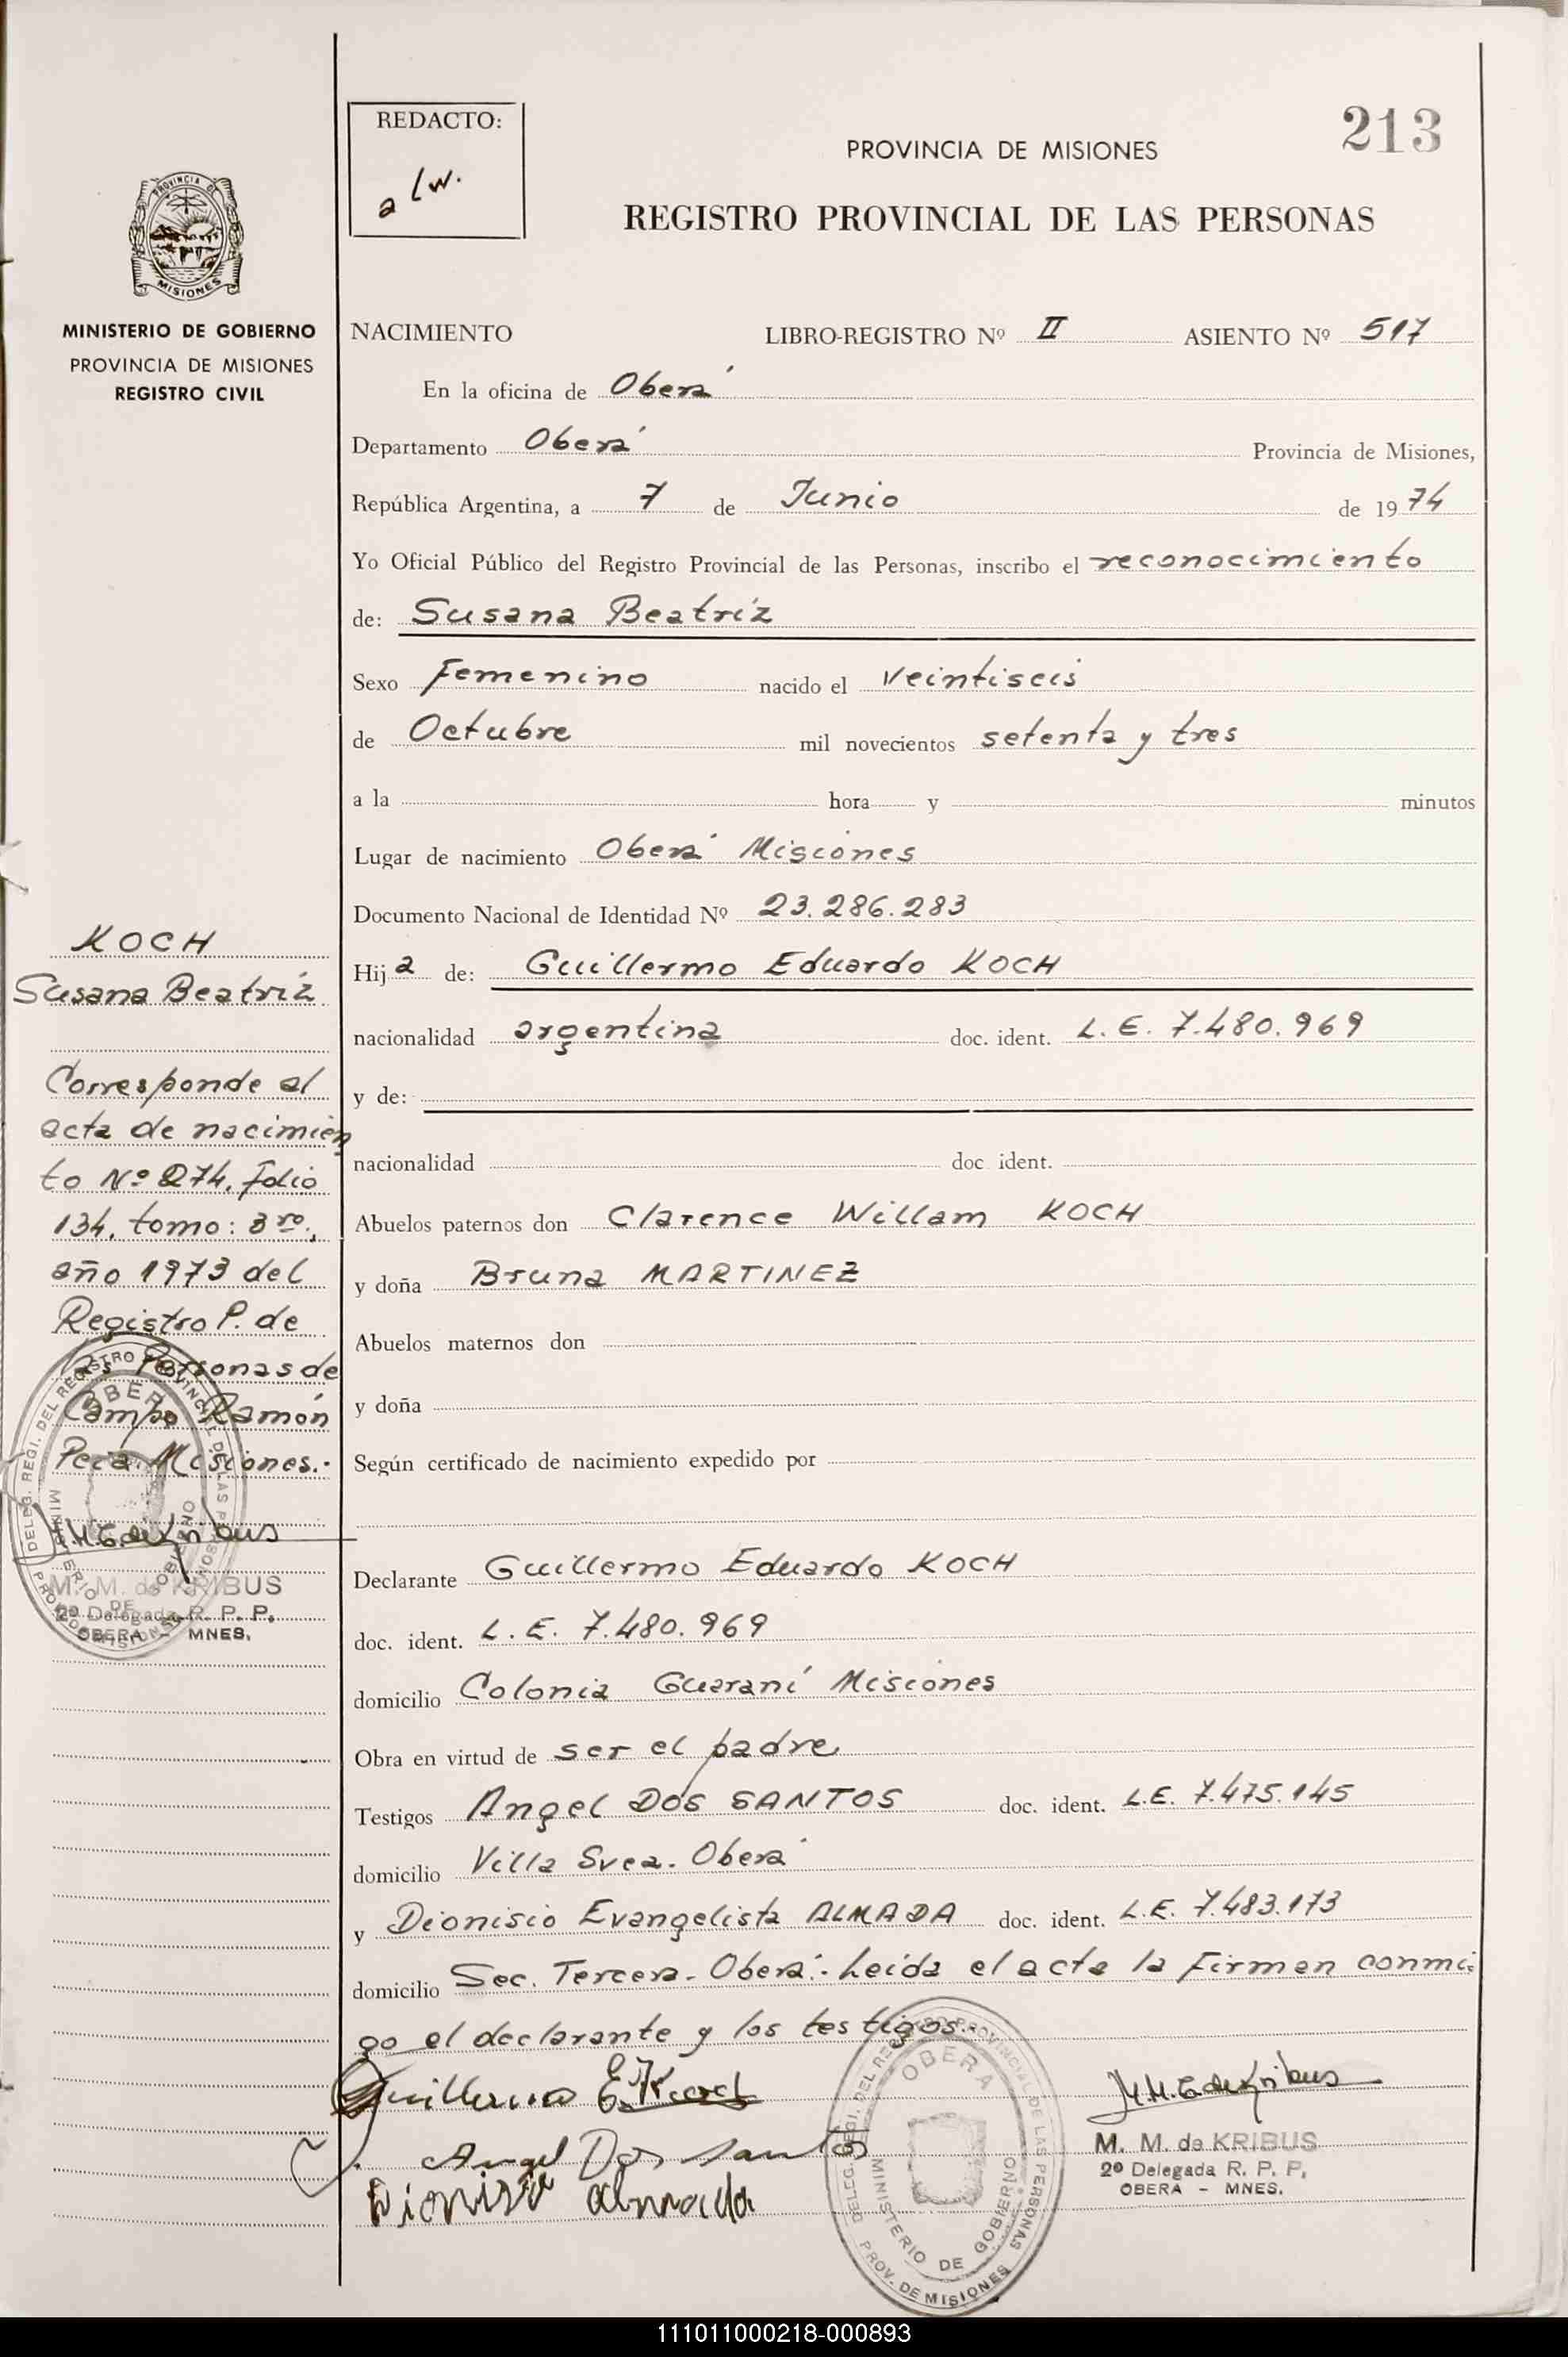 REDACTO:
a lw.
213
PROVINCIA DE MISIONES
REGISTRO PROVINCIAL DE LAS PERSONAS
PROVINCIA DE
MISIONES
MINISTERIO DE GOBIERNO
PROVINCIA DE MISIONES
REGISTRO CIVIL
NACIMIENTO LIBRO-REGISTRO Nº II ASIENTO Nº 517
En la oficina de Oberá
Departamento Oberá Provincia de Misiones,
República Argentina, a 7 de Junio de 1974
Yo Oficial Público del Registro Provincial de las Personas, inscribo el reconocimiento
de: Susana Beatríz
Sexo Femenino nacido el veintiseis
de Octubre mil novecientos setenta y tres
a la hora y minutos
Lugar de nacimiento Oberá Misiones
Documento Nacional de Identidad Nº 23.286.283
Hija de: Guillermo Eduardo KOCH
nacionalidad argentina doc. ident. L.E. 7.480.969
y de:
nacionalidad doc. ident.
Abuelos paternos don Clarence Willam KOCH
y doña Bruna MARTINEZ
Abuelos maternos don
y doña
Según certificado de nacimiento expedido por
Declarante Guillermo Eduardo KOCH
doc. ident. L.E. 7.480.969
domicilio Colonia Guaraní Misiones
Obra en virtud de ser el padre
Testigos Angel DOS SANTOS doc. ident. L.E. 7.475.145
domicilio Villa Svea. Oberá
y Dionisio Evangelista ALMADA doc. ident. L.E. 7.483.173
domicilio Sec. Tercera. Oberá.- Leída el acta la firman conmi
go el declarante y los testigos.-
Guillermo E. Koch
Angel Dos Santos
Dionisio almada
M. M. de Kribus
M. M. de KRIBUS
2º Delegada R. P. P.
OBERA - MNES.
DELEG. REGI. DEL REGISTRO PROVINCIAL DE LAS PERSONAS
OBERA
MINISTERIO DE GOBIERNO
PROV. DE MISIONES
KOCH
Susana Beatríz
Corresponde al
acta de nacimien
to Nº 274, folio
134, tomo: 3ro,
año 1973 del
Registro P. de
las Personas de
Campo Ramón
Pcia. Misiones.-
M. M. de KRIBUS
2º Delegada R. P. P.
OBERA - MNES.
DELEG. REGI. DEL REGISTRO PROVINCIAL DE LAS PERSONAS
OBERA
MINISTERIO DE GOBIERNO
PROV. DE MISIONES
111011000218-000893